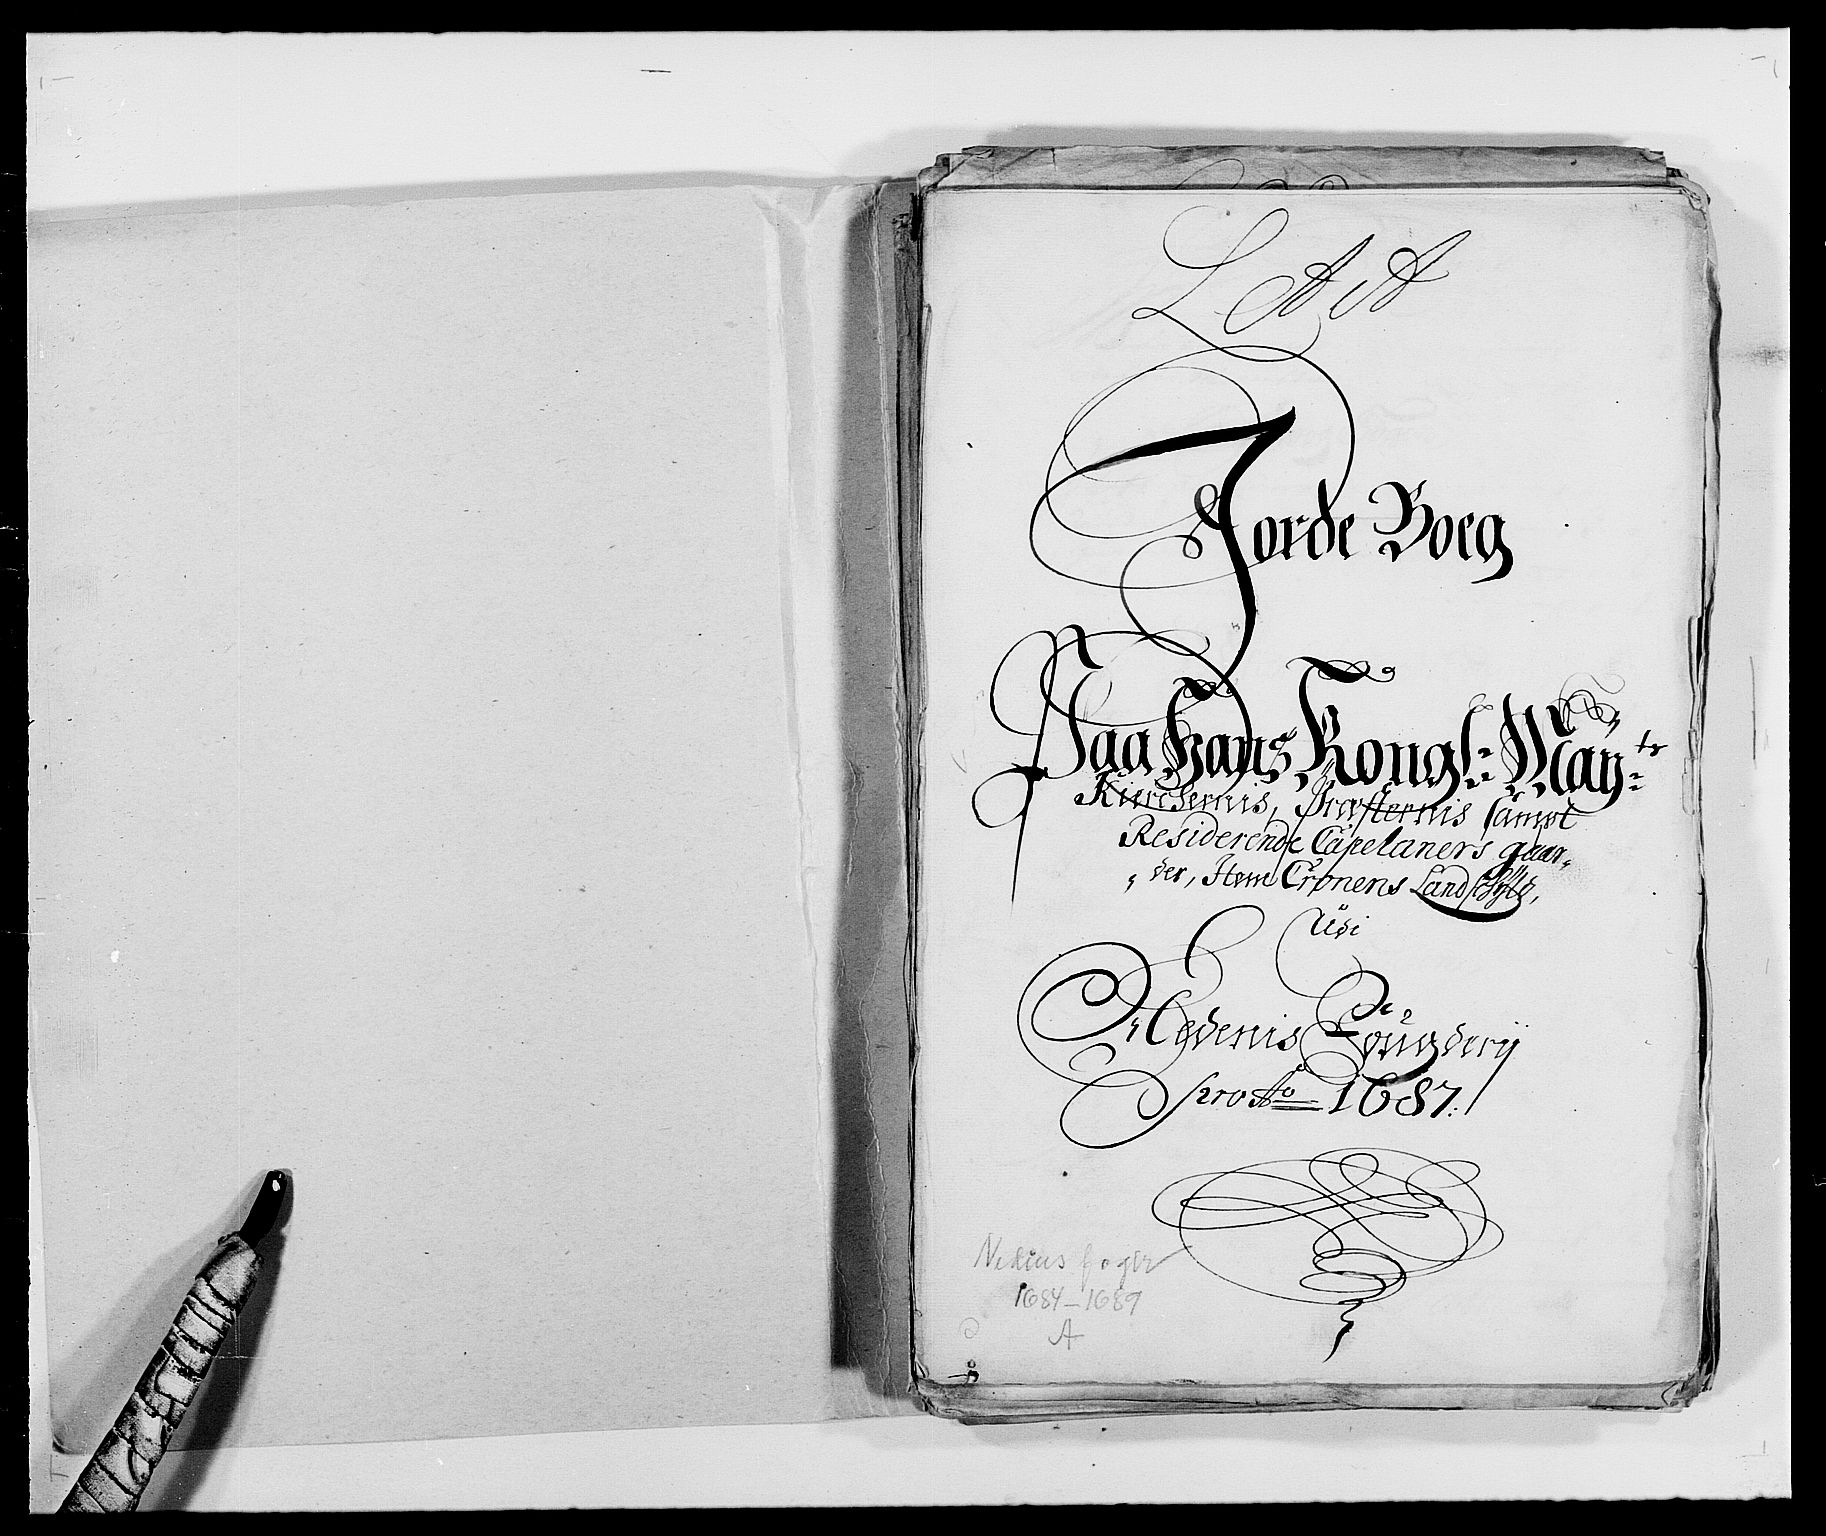 Lit A
Jorde Boeg
Paa Hans Kongl: May:ts
Kierchernis, Præsternis sampt
Residerende Capelaners gaar-
der, Item Cronens Landschyld,
Udi
Nedenis Fougderij
pro Ao 1687.
Nedenes fogderi
1684-1689
A